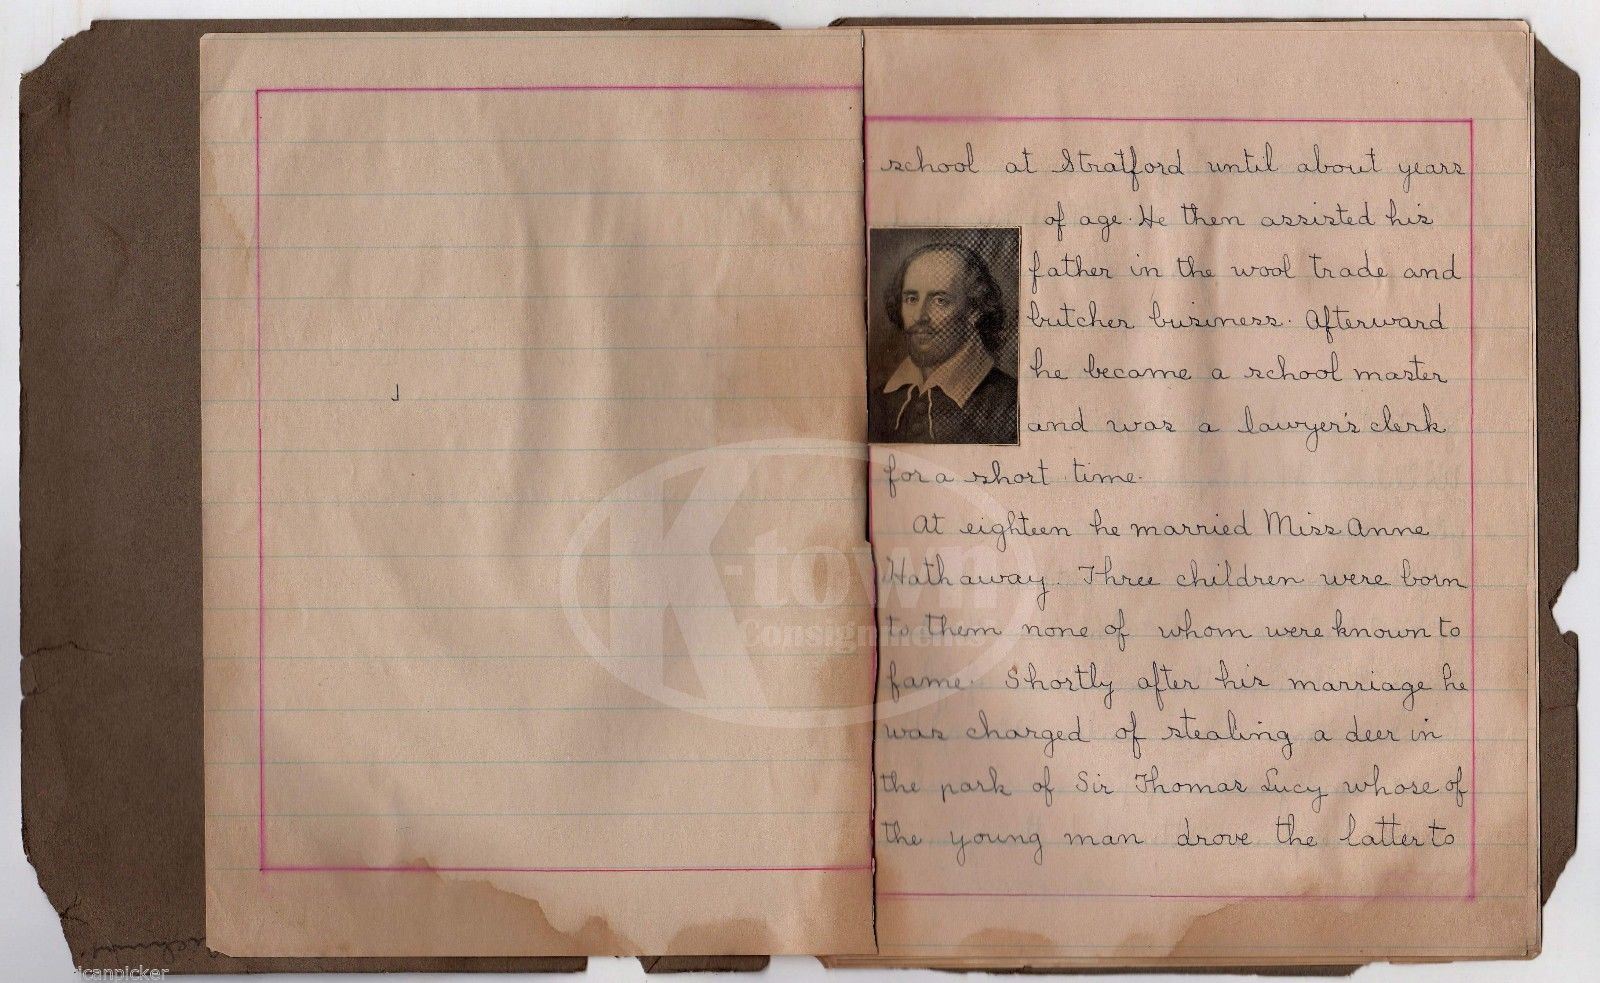 school at Stratford until about years
of age. He then assisted his
father in the wool trade and
butcher business. Afterward
he became a school master
and was a lawyer's clerk
for a short time.
At eighteen he married Miss Anne
Hathaway. Three children were born
to them none of whom were known to
fame. Shortly after his marriage he
was charged of stealing a deer in
the park of Sir Thomas Lucy whose of
the young man drove the latter to
K-town
Consignments
ricanpicker